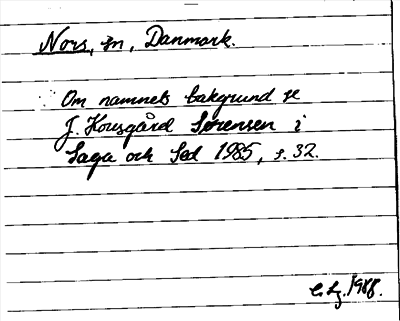 Nors, sn, Danmark.
Om namnets bakgrund se
J. Kousgård Sørensen i
Saga och Sed 1985, s. 32.
1988.